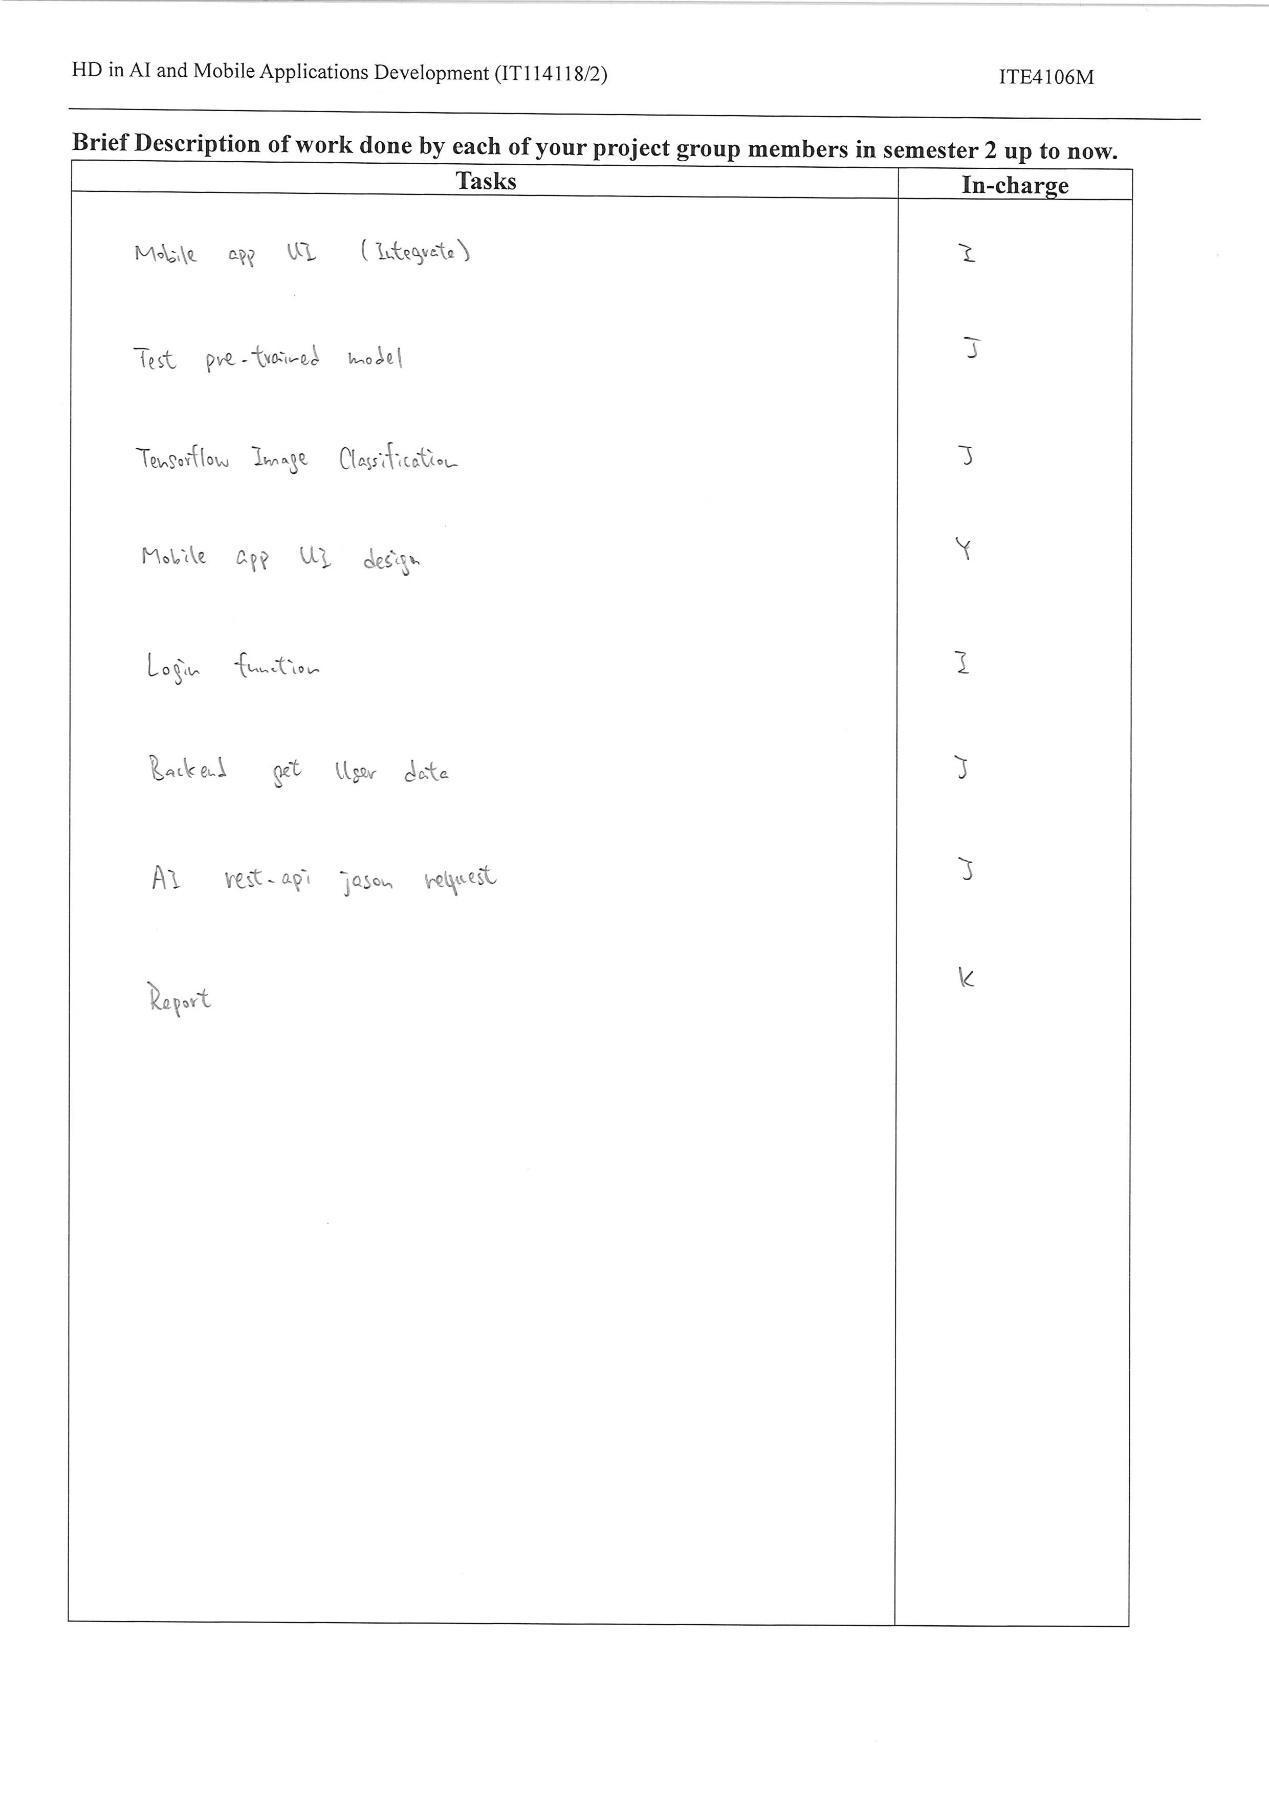 HD in AI and Mobile Applications Development (IT114118/2) ITE4106M
Brief Description of work done by each of your project group members in semester 2 up to now.
Tasks In-charge
Mobile app UI (Integrate) I
Test pre-trained model J
Tensorflow Image Classification J
Mobile app UI design Y
Login function I
Backend get User data J
AI rest-api jason request J
Report K